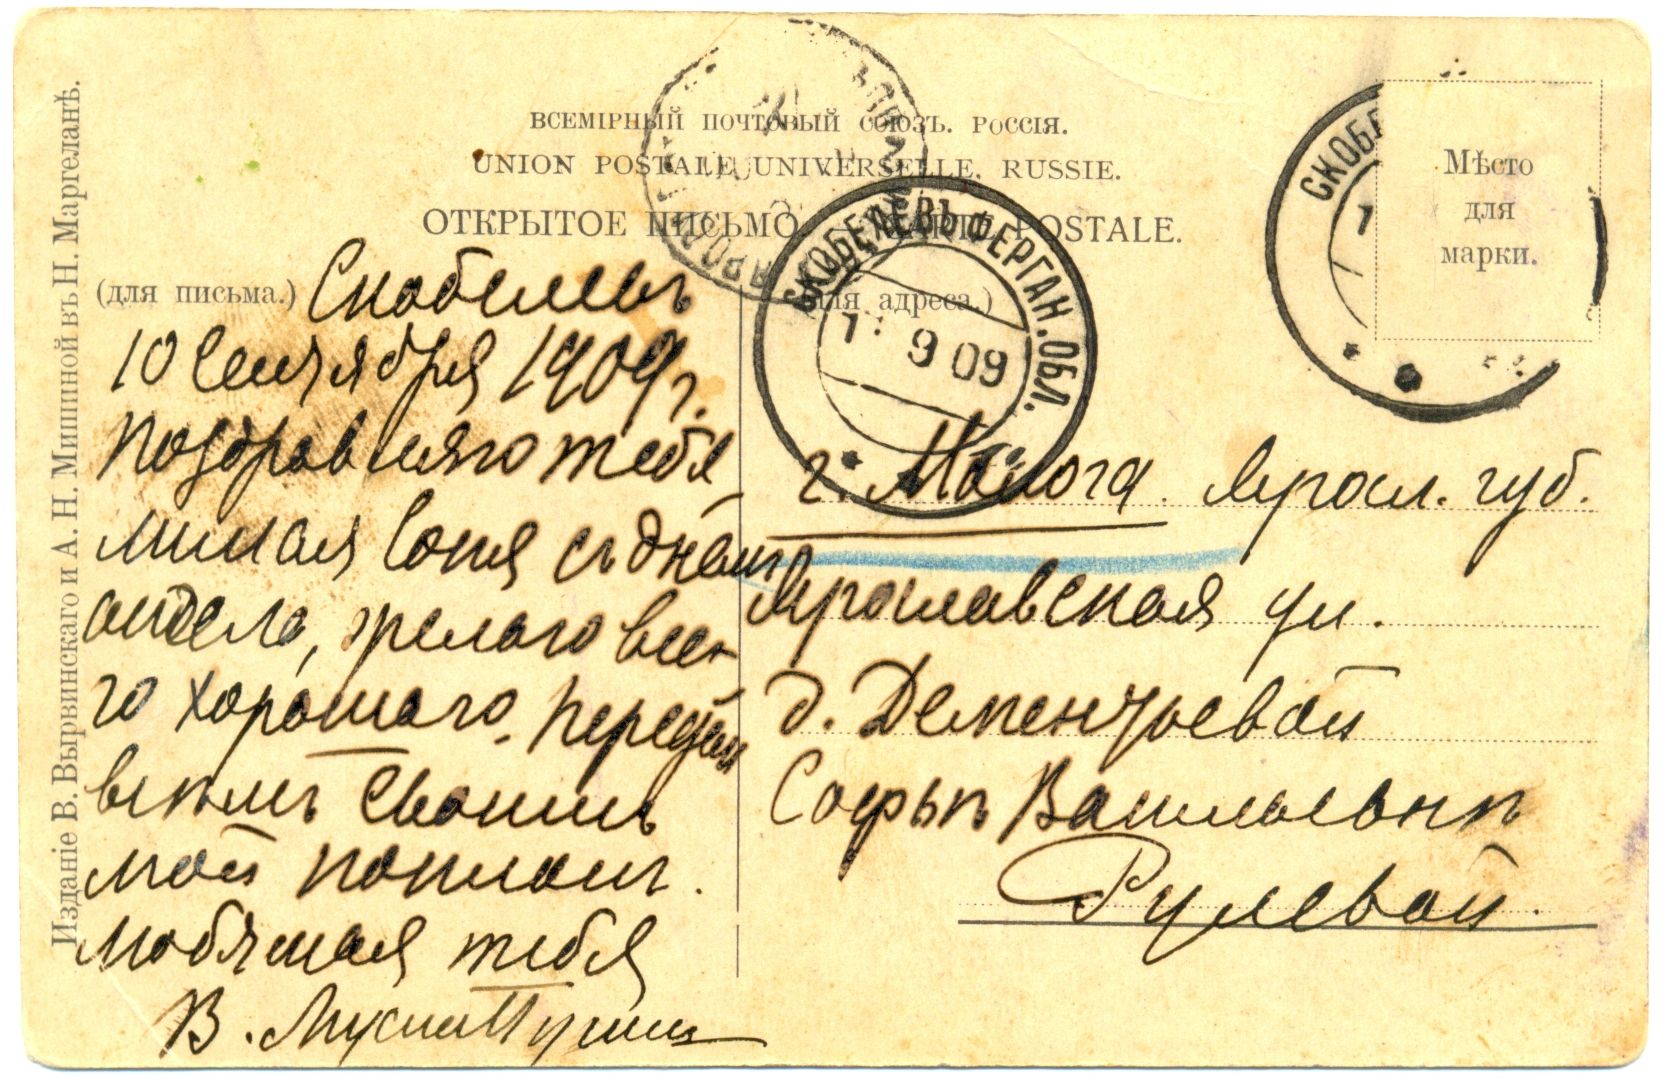 ВСЕМІРНЫЙ ПОЧТОВЫЙ СОЮЗЪ. РОССІЯ.
UNION POSTALE UNIVERSELLE. RUSSIE.
ОТКРЫТОЕ ПИСЬМО. CARTE POSTALE.
Мѣсто
для
марки.
СКОБЕЛЕВЪ ФЕРГАН. ОБЛ.
9 09
СКОБЕ
(для письма.)
Скобелевъ
10 Сентября 1909 г.
Поздравляю тебя
милая Соня съ днемъ
ангела, желаю все-
го хорошаго. Передай
всѣмъ своимъ
мой поклонъ.
Любящая тебя
В. Мусина Пушкин
(для адреса.)
г. Молога. Яросл. губ.
Ярославская ул.
д. Дементьевой
Софьѣ Васильевнѣ
Рулевой.
Изданіе В. Вырвинскаго и А. Н. Мишиной въ Н. Маргеланѣ.